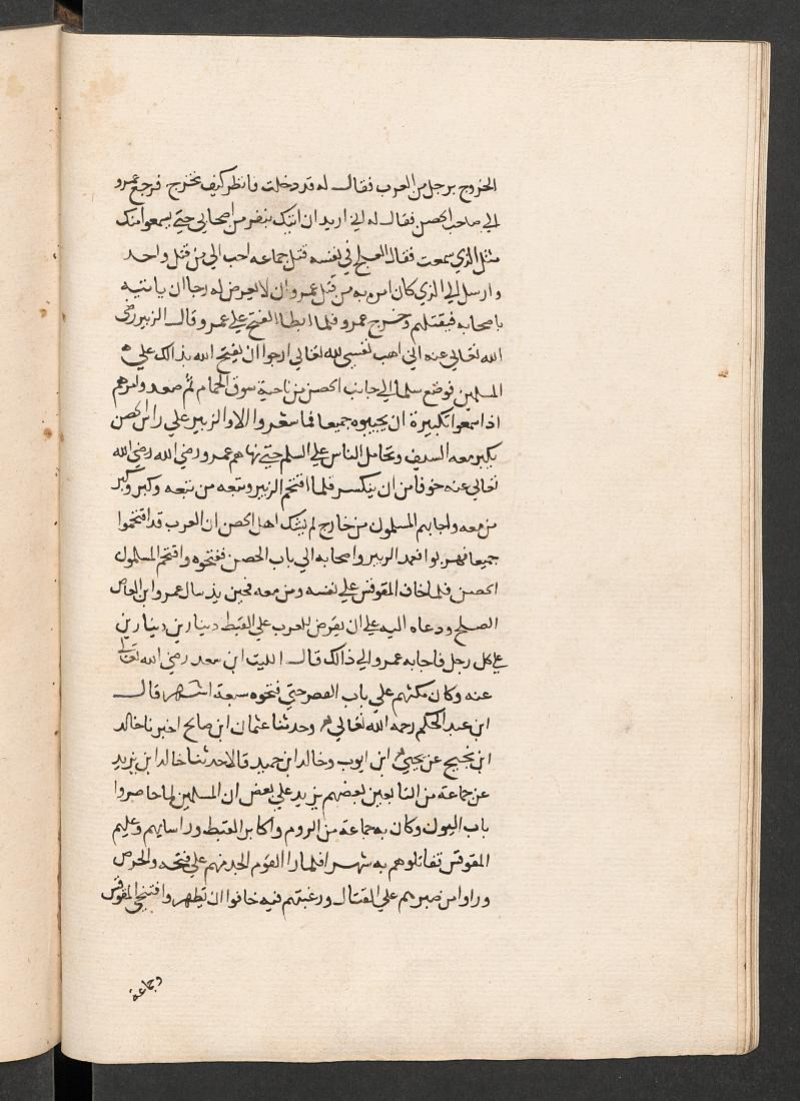 الخروج برجل من العرب فقال له قد دخلت فانظر كيف تخرج فرجع عمرو
الي صاحب الحصن فقال له اني اريد ان اتيك بنفر من اصحابي حتي يسمعوا منك
مثل الذي سمعت فقال العلج في نفسه قتل جماعه احب الي من قتل واحد
وارسل الي الذي كان امره به من قتل عمرو ان لا يعرض له رجا ان ياتيه
باصحابه فيقتلهم وخرج عمرو فلما ابطا الفتح علي عمرو قال الزبير رضي
الله تعالي عنه اني اهب نفسي لله تعالي ارجوا ان يفتح الله بذالك علي
المسلمين فوضع سلما الي جانب الحصن من ناحية سوق الحمام ثم صعد وامرهم
اذا سمعوا تكبيرة ان يجيبوه جميعا فما شعروا الا والزبير علي راس الحصن
يكبر معه السيف وتحامل الناس علي السلم حتي نهاهم عمرو رضي الله رضي الله
تعالي عنه خوفا من ان ينكسر فلما اقتحم الزبير وتبعه من تبعه وكبر وكبر
من معه واجابهم المسلمون من خارج لم يشك اهل الحصن ان العرب قد اقتحموا
جميعا فهربوا فعمد الزبير واصحابه الي باب الحصن ففتحوه واقتحم المسلمون
الحصن فلما خاف المقوقس علي نفسه ومن معه فحين يذ سال عمرو ابن العاص
الصلح ودعاه اليه علي ان يفرض للعرب علي القبط دينارين دينارين
علي كل رجل فاجابه عمرو الي ذالك قال الليث ابن سعد رضي الله تعالي
عنه وكان مكثهم علي باب القصر حتي فتحوه سبعة اشهر قال
ابن عبد الحكم رحمه الله تعالي وحدثنا عثمان ابن صالح اخبرنا خالد
ابن نجيح عن يحيي ابن ايوب وخالد ابن حميد قالا حدثنا خالد ابن يزيد
عن جماعة من التابعين بعضهم يزيد علي بعض ان المسلمين لما حاصروا
باب اليون وكان به جماعة من الروم واكابر القبط وراسايهم وعليهم
المقوقس تقاتلوهم به شهرا فلما را القوم الجد منهم علي فتحه والحرص
وراوا من صبرهم علي القتال ورغبتهم فيه خافوا ان يظهروا فتنحي المقوقس
وجماعة